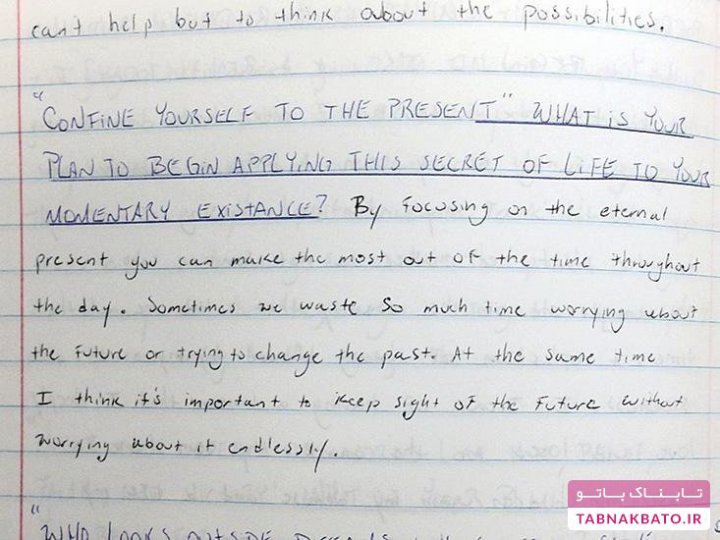 can't help but to think about the possibilities.
"CONFINE YOURSELF TO THE PRESENT" WHAT is YOUR
PLAN TO BEGIN APPLYING THIS SECRET OF LIFE TO YOUR
MOMENTARY EXISTANCE? By Focusing on the eternal
present you can make the most out of the time throughout
the day. Sometimes we waste so much time worrying about
the future or trying to change the past. At the same time
I think it's important to keep sight of the future without
worrying about it endlessly.
"WHO LOOKS OUTSIDE
تابناک باتو
TABNAKBATO.IR